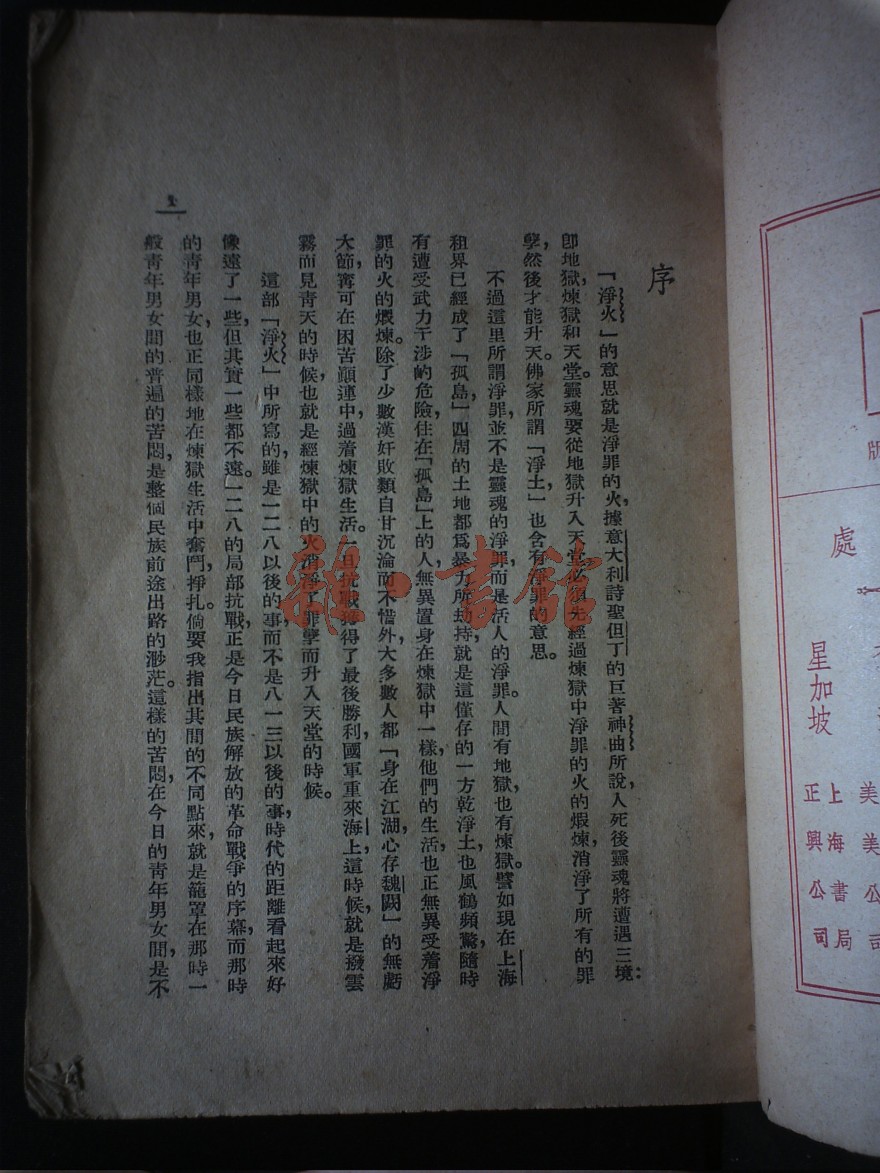 序
「淨火」的意思就是淨罪的火，據意大利詩聖但丁的巨著神曲所說，人死後靈魂將遭遇三境：
卽地獄，煉獄和天堂。靈魂要從地獄升入天堂，必須先經過煉獄中淨罪的火的煅煉，消淨了所有的罪
孽，然後才能升天。佛家所謂「淨土」也含有淨罪的意思。
不過這里所謂淨罪，並不是靈魂的淨罪，而是活人的淨罪。人間有地獄，也有煉獄。譬如現在上海
租界已經成了「孤島」，四周的土地都爲暴力所劫持，就是這僅存的一方乾淨土，也風鶴頻驚，隨時
有遭受武力干涉的危險，住在「孤島」上的人，無異置身在煉獄中一樣，他們的生活，也正無異受着淨
罪的火的煅煉。除了少數漢奸敗類自甘沉淪而不惜外，大多數人都「身在江湖，心存魏闕」的無虧
大節，寗可在困苦顚連中，過着煉獄生活。一旦抗戰獲得了最後勝利，國軍重來海上，這時候，就是撥雲
霧而見靑天的時候，也就是經煉獄中的火消淨了罪孽而升入天堂的時候。
這部「淨火」中所寫的，雖是一二八以後的事，而不是八一三以後的事，時代的距離看起來好
像遠了一些，但其實一些都不遠。一二八的局部抗戰，正是今日民族解放的革命戰爭的序幕，而那時
的靑年男女，也正同樣地在煉獄生活中奮鬥，掙扎。倘要我指出其間的不同點來，就是籠罩在那時一
般靑年男女間的普遍的苦悶，是整個民族前途出路的渺茫。這樣的苦悶，在今日的靑年男女間，是不
1
版
處
星加坡
上海書局
正興公司
美美公司
雜·書館